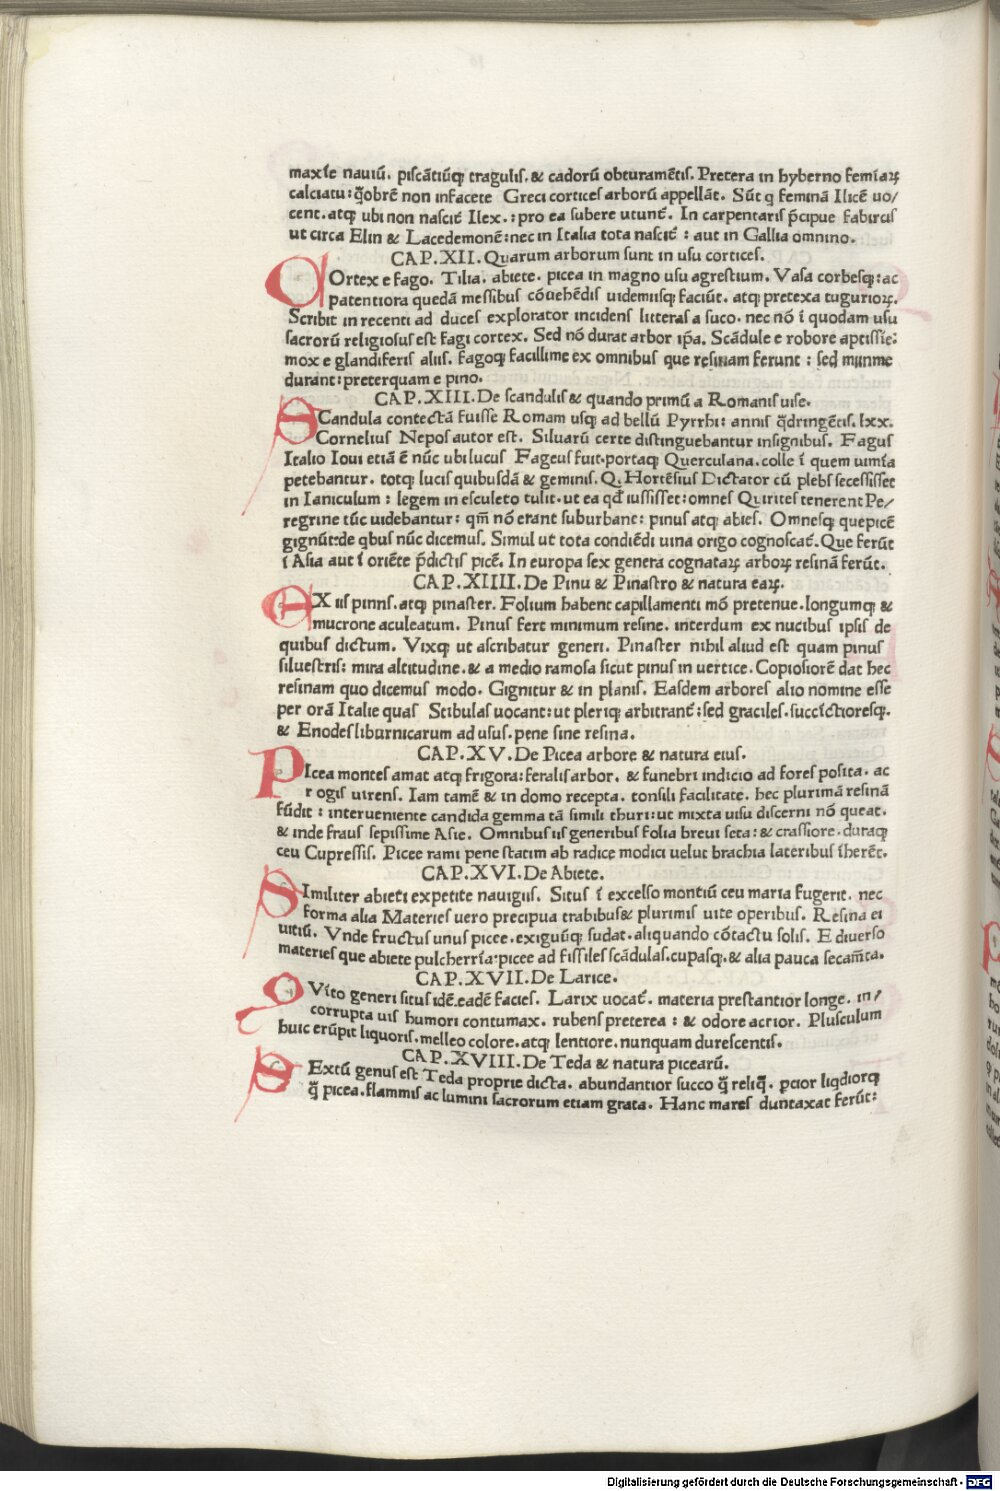 maxīe nauiū. piſcātiūq; tragulis. & cadorū obturamētis. Pretera in hyberno femīaꝝ
calciatu: q̄obrē non infacete Greci cortices arborū appellāt. Sūt q feminā Ilicē uo/
cent. atq; ubi non naſcit̄ Ilex.: pro ea subere utunt̄. In carpentaris p̄cipue fabircis
ut circa Elin & Lacedemonē: nec in Italia tota naſcit̄ : aut in Gallia omnino.
CAP.XII. Quarum arborum ſunt in uſu cortices.
COrtex e fago. Tilia. abiete. picea in magno uſu agreſtium. Vaſa corbeſq;: ac
patentiora quedā meſſibus cōuehēdis uidemiiſq; faciūt. atq; pretexa tugurioꝝ.
Scribit in recenti ad duces explorator incidens litteras a ſuco. nec nō ī quodam uſu
ſacrorū religioſus eſt fagi cortex. Sed nō durat arbor ip̄a. Scādule e robore aptiſſie:
mox e glandiferis aliis. fagoq; facillime ex omnibus que reſinam ferunt : ſed minme
durant: preterquam e pino.
CAP.XIII. De ſcandulis & quando primū a Romanis uiſe.
SCandula contectā fuiſſe Romam uſq; ad bellū Pyrrhi: annis q̄dringētis. lxx.
Cornelius Nepos autor eſt. Siluarū certe diſtinguebantur inſignibus. Fagus
Italio Ioui etiā ē nūc ubi lucus Fageus fuit. portaq; Querculana. colle ī quem uimīa
petebantur. totq; lucis quibuſdā & geminis. Q. Hortēſius Dictator cū plebs ſeceſſiſſet
in Ianiculum : legem in eſculeto tulit. ut ea qd̄ iuſſiſſet: omnes Quirites tenerent Pe/
regrine tūc uidebantur: qm̄ nō erant ſuburbane: pinus atq; abies. Omneſq; que picē
gignūt: de qbus nūc dicemus. Simul ut tota condiēdi uina origo cognoſcat̄. Que ferūt
ī Aſia aut ī oriēte p̄dictis picē. In europa ſex genera cognataꝝ arboꝝ reſinā ferūt.
CAP.XIIII. De Pinu & Pinaſtro & natura eaꝝ.
EX iis pinns. atq; pinaſter. Folium habent capillamenti mō pretenue. longumq; &
mucrone aculeatum. Pinus fert minimum reſine. interdum ex nucibus ipſis de
quibus dictum. Vixq; ut aſcribatur generi. Pinaſter nihil aliud eſt quam pinus
ſilueſtris: mira altitudine. & a medio ramoſa ſicut pinus in uertice. Copioſiorē dat hec
reſinam quo dicemus modo. Gignitur & in planis. Eaſdem arbores alio nomine eſſe
per orā Italie quas Stibulas uocant: ut pleriq; arbitrant̄: ſed graciles. ſuccīctioreſq;.
& Enodes liburnicarum ad uſus. pene ſine reſina.
CAP.XV. De Picea arbore & natura eius.
PIcea montes amat atq; frigora: feralis arbor. & funebri indicio ad fores poſita. ac
r ogis uirens. Iam tamē & in domo recepta. tonſili facilitate. hec plurimā reſinā
fūdit : interueniente candida gemma tā ſimili thuri: ut mixta uiſu diſcerni nō queat.
& inde fraus ſepiſſime Aſie. Omnibus iis generibus folia breui ſeta: & craſſiore. duraq;
ceu Cupreſſis. Picee rami pene ſtatim ab radice modici uelut brachia lateribus īherēt.
CAP.XVI. De Abiete.
SImiliter abieti expetite nauigiis. Situs ī excelſo montiū ceu maria fugerit. nec
forma alia Materies uero precipua trabibus & plurimis uite operibus. Reſina ei
uitiū. Vnde fructus unus picce. exiguūq; ſudat. aliquando cōtactu ſolis. E diuerſo
materies que abiete pulcherrīa: picee ad fiſſiles ſcādulas. cupaſq;. & alia pauca ſecam̄ta.
CAP.XVII. De Larice.
QVīto generi ſitus idē. eadē facies. Larix uocat̄. materia preſtantior longe. in/
corrupta uis humori contumax. rubens preterea : & odore acrior. Pluſculum
huic erūpit liquoris. melleo colore. atq; lentiore. nunquam dureſcentis.
CAP.XVIII. De Teda & natura picearū.
SExtū genus eſt Teda proprie dicta. abundantior ſucco q̄ reliq̄. pcior liqdiorq;
q̄ picea. flammis ac lumini ſacrorum etiam grata. Hanc mares duntaxat ferūt:
Digitalisierung gefördert durch die Deutsche Forschungsgemeinschaft - DFG